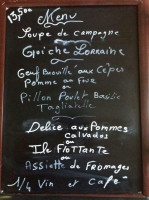 13,50€
Menu
Soupe de campagne
ou
Quiche Lorraine
Oeuf Brouillé aux Cèpes
Pomme au Four
ou
Pillon Poulet Basse
Tagliatelle
Delice aux Pommes
Calvados
ou
Ile Flottante
ou
Assiette de Fromages
1/4 Vin et Café